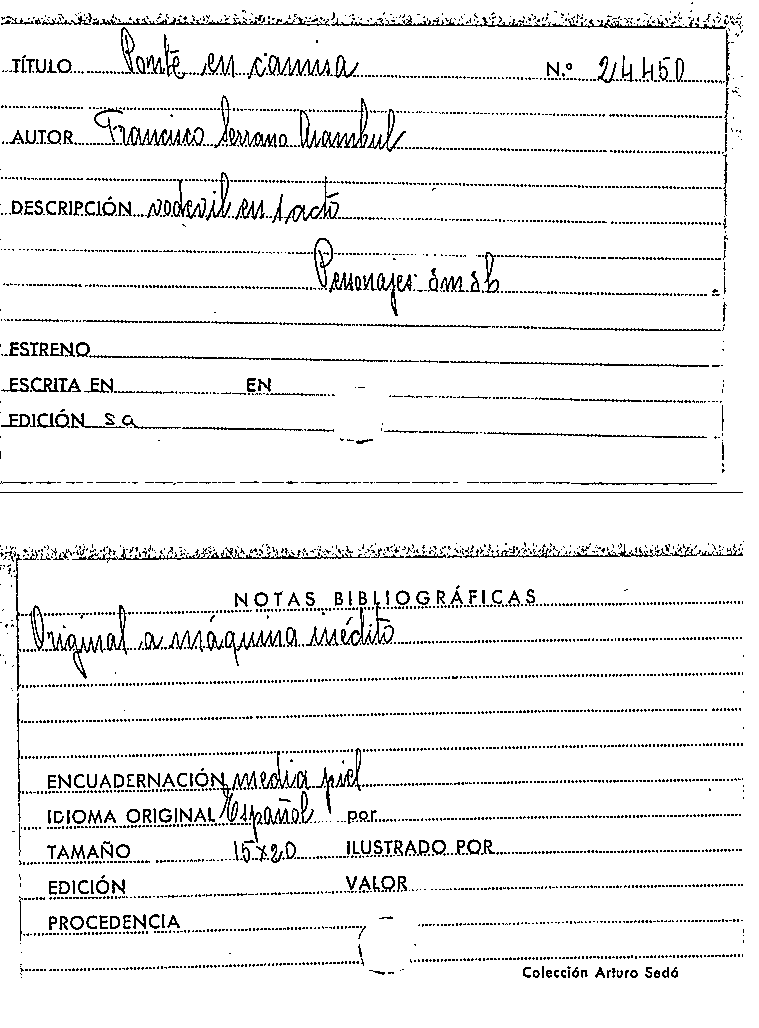 TÍTULO Ponte en camisa N.º 24450
AUTOR Francisco Serrano
DESCRIPCIÓN vodevil en 1 acto
Personajes:
ESTRENO
ESCRITA EN EN
EDICIÓN s a
NOTAS BIBLIOGRÁFICAS
Original a máquina inédito
ENCUADERNACIÓN media piel
IDIOMA ORIGINAL Español por
TAMAÑO 15x20 ILUSTRADO POR
EDICIÓN VALOR
PROCEDENCIA
Colección Arturo Sedó